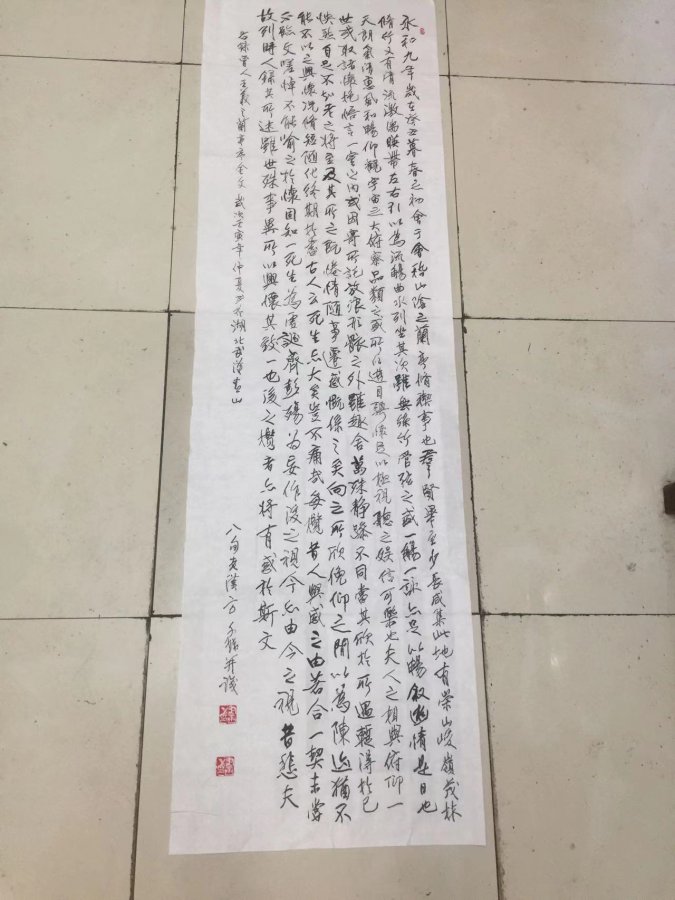 永和九年歲在癸丑暮春之初會于會稽山陰之蘭亭脩禊事也羣賢畢至少長咸集此地有崇山峻嶺茂林
脩竹又有清流激湍暎帶左右引以為流觴曲水列坐其次雖無絲竹管弦之盛一觴一詠亦足以暢敘幽情是日也
天朗氣清惠風和暢仰觀宇宙之大俯察品類之盛所以遊目騁懷足以極視聽之娛信可樂也夫人之相與俯仰一
世或取諸懷抱悟言一室之內或因寄所託放浪形骸之外雖趣舍萬殊靜躁不同當其欣於所遇蹔得於己
怏然自足不知老之將至及其所之既惓情隨事遷感慨係之矣向之所欣俛仰之間以為陳迹猶不
能不以之興懷況脩短隨化終期於盡古人云死生亦大矣豈不痛哉每攬昔人興感之由若合一契未嘗
不臨文嗟悼不能喻之於懷固知一死生為虛誕齊彭殤為妄作後之視今亦由今之視昔悲夫
故列時人錄其所述雖世殊事異所以興懷其致一也後之攬者亦將有感於斯文
右錄晉人王羲之蘭亭序全文 歲次壬寅年仲夏 於湖北武漢青山
八旬老漢方 書并識